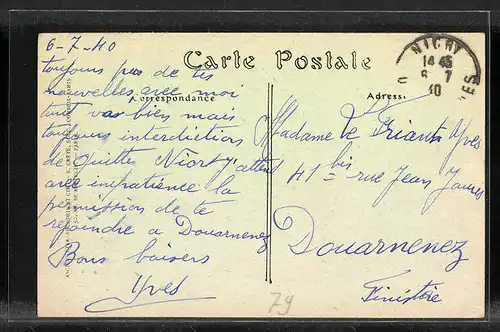 6-7-40
Carte Postale
Correspondance
Adresse
NIORT
14 45
6 7
40
toujours pas de tes
nouvelles avec moi
tout va bien mais
toujours interdiction
de quitter Niort j'attend
avec impatience la
permission de te
rejoindre a Douarnenez
Bons baisers
Yves
Madame Le Yves
41 bis rue Jean Jaures
Douarnenez
Finistère
79